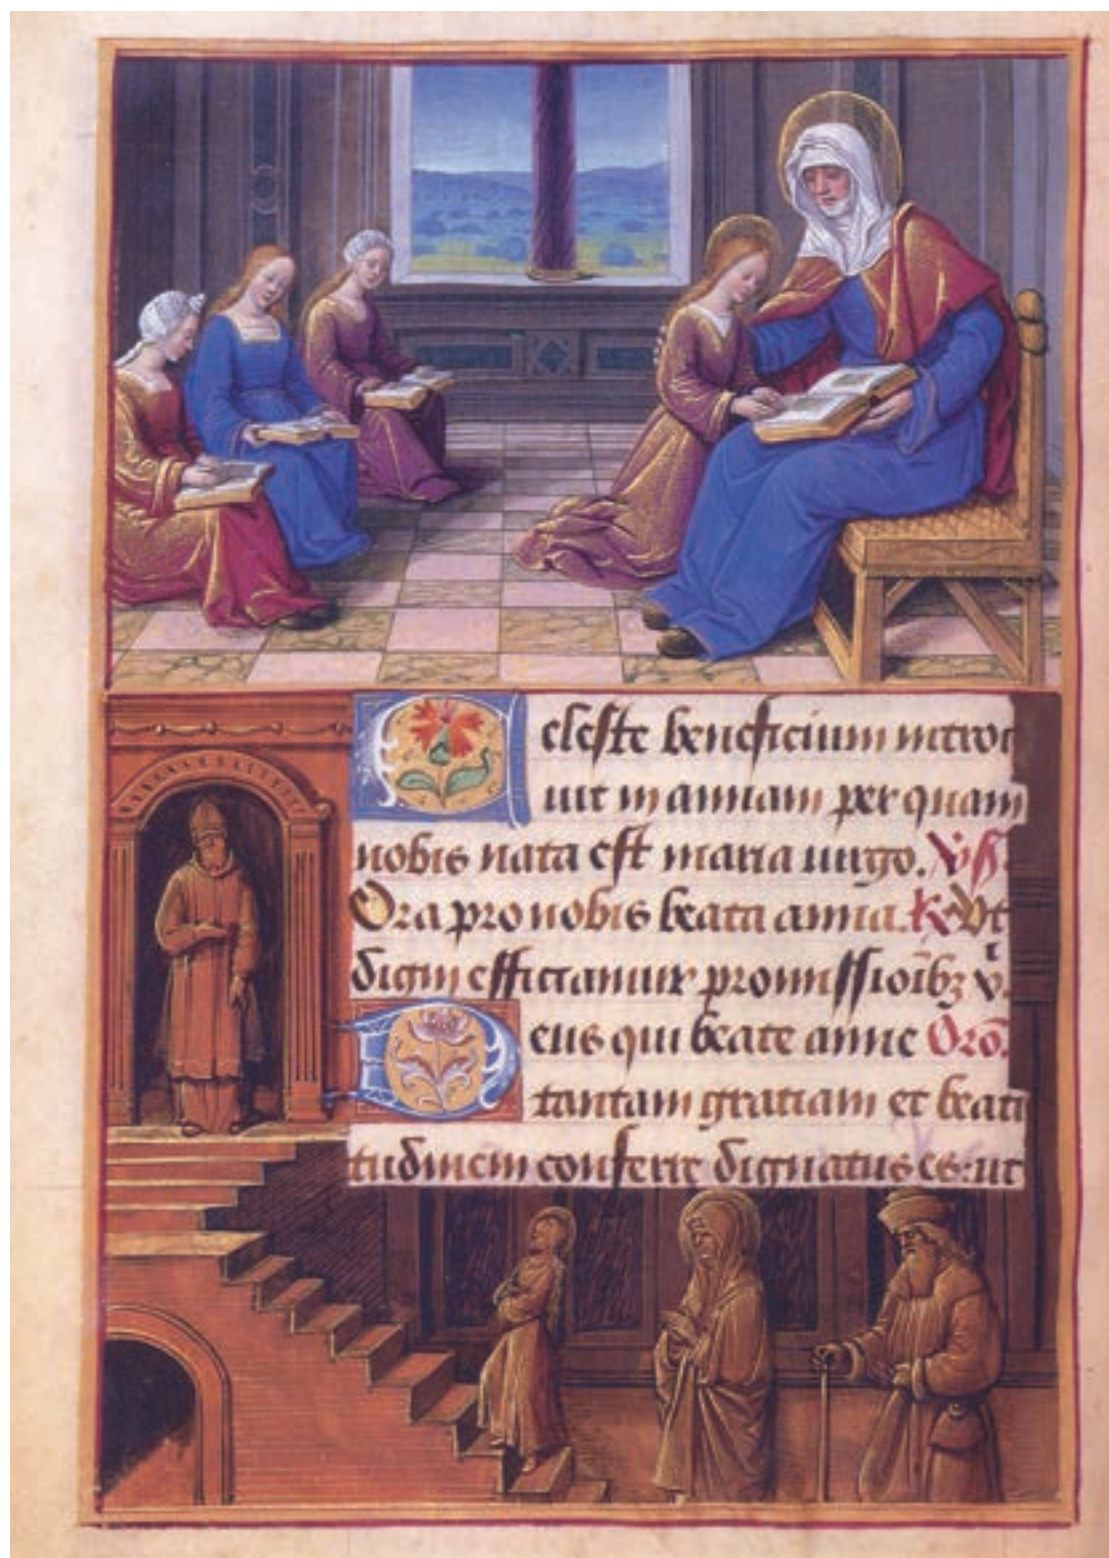 Celeste beneficium introi
uit in annam per quam
nobis nata est maria uirgo. V̷s̷.
Ora pro nobis beata anna. R̷. Vt
digni efficiamur promissioībꝫ v̇.
Deus qui beate anne Orō.
tantam gratiam et beati
tudinem conferre dignatus es: ut